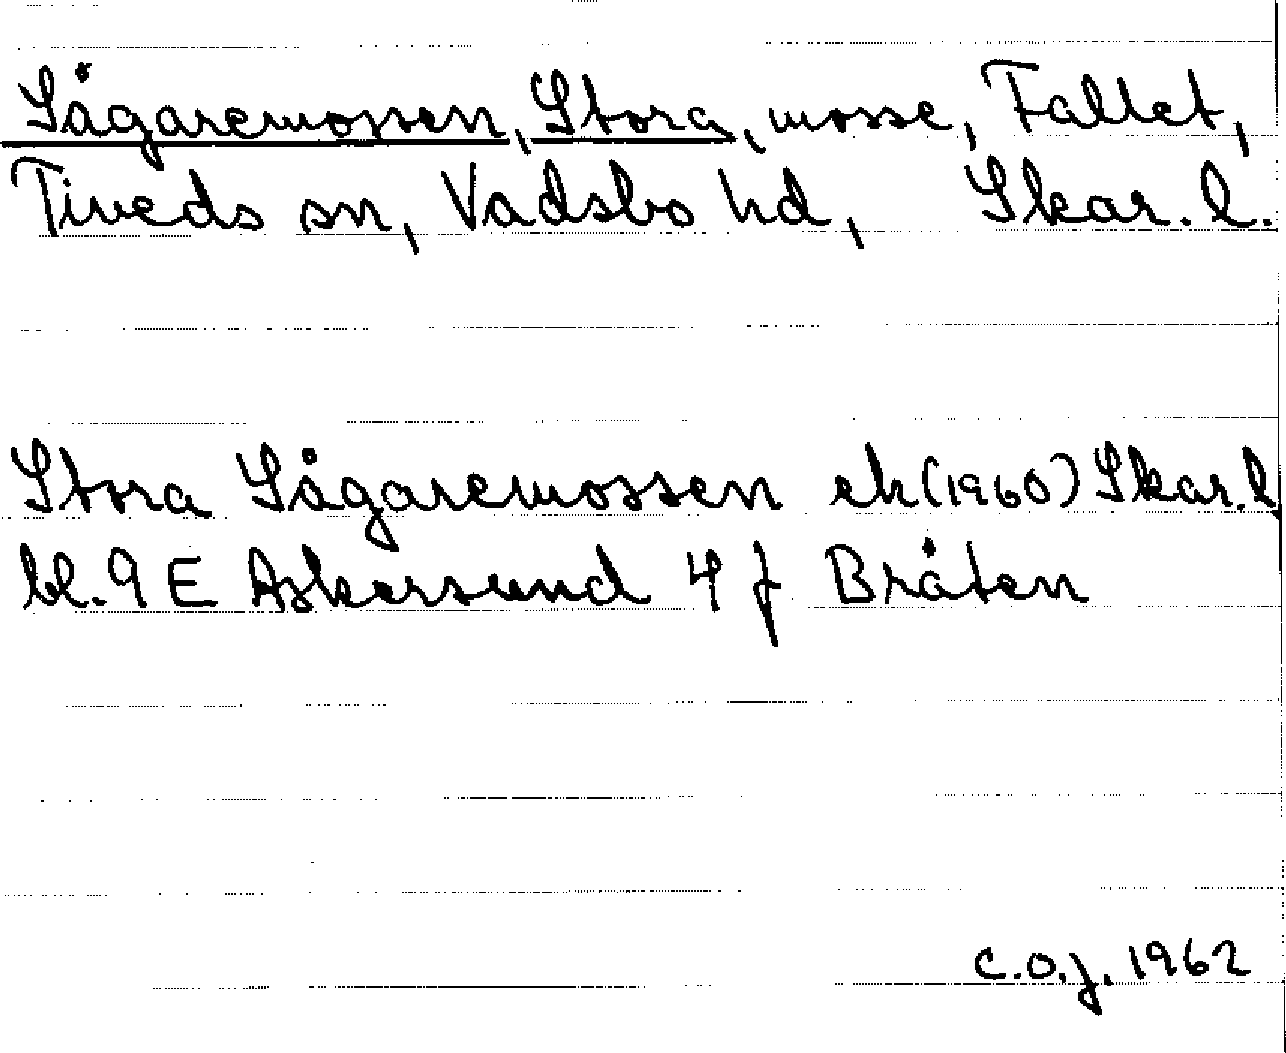 Sågaremossen, Stora, mosse, Fallet,
Tiveds sn, Vadsbo hd, Skar. l.
Stora Sågaremossen ek (1960) Skar. l.
bl. 9 E Askersund 4 f Bråten
C.O.J. 1962